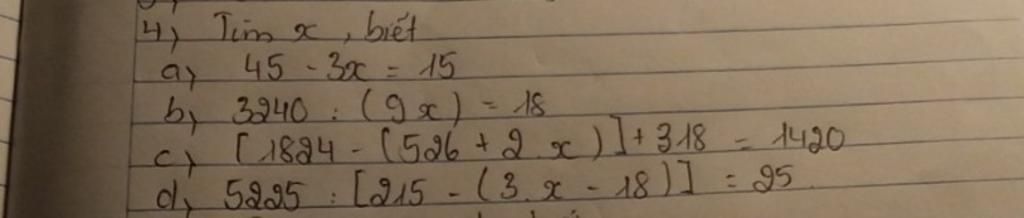 4) Tìm x, biết
a) 45 - 3x = 15
b) 3240 : (9x) = 18
c) [1824 - (526 + 2.x)] + 318 = 1420
d) 5225 : [215 - (3.x - 18)] = 25